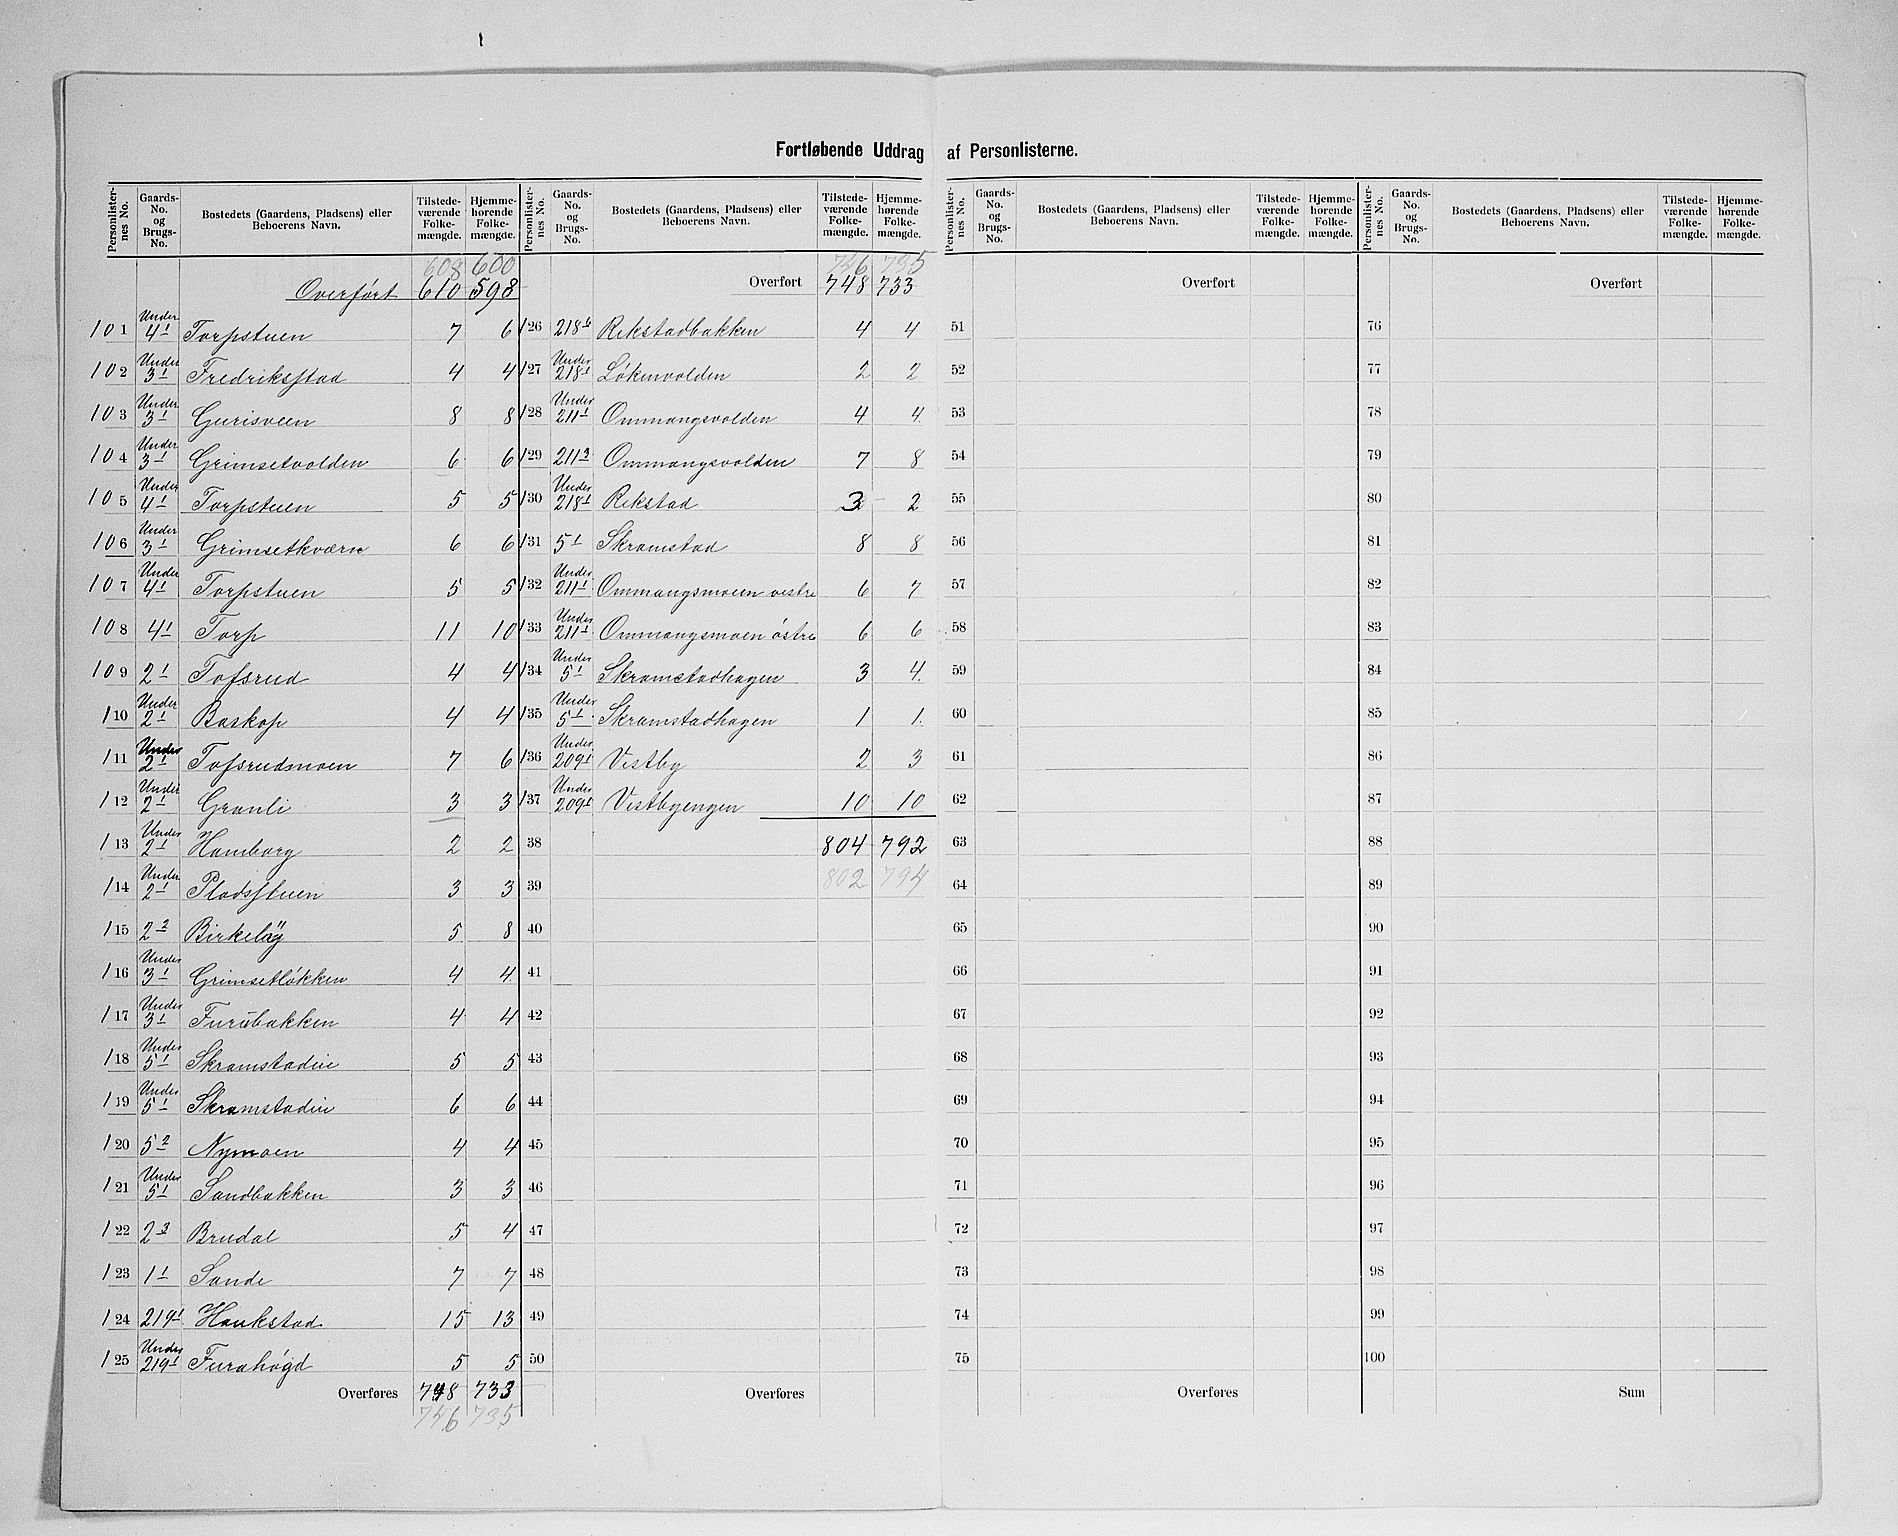 Fortløbende Uddrag af Personlisterne.
Personlister-nes No. | Gaards-No. og Brugs-No. | Bostedets (Gaardens, Pladsens) eller Beboerens Navn. | Tilstede-værende Folke-mængde. | Hjemme-hørende Folke-mængde.
608 600
Overført 610 598
101 Under 4¹ Torpstuen 7 6
102 Under 3¹ Fredriksstad 4 4
103 Under 3¹ Gurisveen 8 8
104 Under 3¹ Grimsetvolden 6 6
105 Under 4¹ Torpstuen 5 5
106 Under 3¹ Grimsetkværn 6 6
107 Under 4¹ Torpstuen 5 5
108 4¹ Torp 11 10
109 2¹ Tofsrud 4 4
110 Under 2¹ Baskop 4 4
111 Under 2¹ Tofsrudmoen 7 6
112 Under 2¹ Granli 3 3
113 Under 2¹ Hamborg 2 2
114 Under 2¹ Pladsstuen 3 3
115 2² Birkeløy 5 8
116 Under 3¹ Grimsetløkken 4 4
117 Under 3¹ Furubakken 4 4
118 Under 5¹ Skramstadeie 5 5
119 Under 5¹ Skramstadeie 6 6
120 5² Nymoen 4 4
121 Under 5¹ Sandbakken 3 3
122 2³ Brudal 5 4
123 1¹ Sande 7 7
124 219¹ Haukstad 15 13
125 Under 219¹ Furuhøgd 5 5
Overføres 748 733
746 735
Personlister-nes No. | Gaards-No. og Brugs-No. | Bostedets (Gaardens, Pladsens) eller Beboerens Navn. | Tilstede-værende Folke-mængde. | Hjemme-hørende Folke-mængde.
746 735
Overført 748 733
126 218⁶ Rekstadbakken 4 4
127 Under 218¹ Løkenvolden 2 2
128 Under 211¹ Ommangsvolden 4 4
129 211³ Ommangsvolden 7 8
130 Under 218¹ Rekstad 3 2
131 5¹ Skramstad 8 8
132 Under 211¹ Ommangsmoen vestre 6 7
133 Under 211¹ Ommangsmoen østre 6 6
134 Under 5¹ Skramstadhagen 3 4
135 Under 5¹ Skramstadhagen 1 1
136 Under 209¹ Vestby 2 3
137 Under 209¹ Vestbyengen 10 10
38 804 792
39 802 794
40
41
42
43
44
45
46
47
48
49
50
Overføres
Personlister-nes No. | Gaards-No. og Brugs-No. | Bostedets (Gaardens, Pladsens) eller Beboerens Navn. | Tilstede-værende Folke-mængde. | Hjemme-hørende Folke-mængde.
Overført
51
52
53
54
55
56
57
58
59
60
61
62
63
64
65
66
67
68
69
70
71
72
73
74
75
Overføres
Personlister-nes No. | Gaards-No. og Brugs-No. | Bostedets (Gaardens, Pladsens) eller Beboerens Navn. | Tilstede-værende Folke-mængde. | Hjemme-hørende Folke-mængde.
Overført
76
77
78
79
80
81
82
83
84
85
86
87
88
89
90
91
92
93
94
95
96
97
98
99
100
Sum